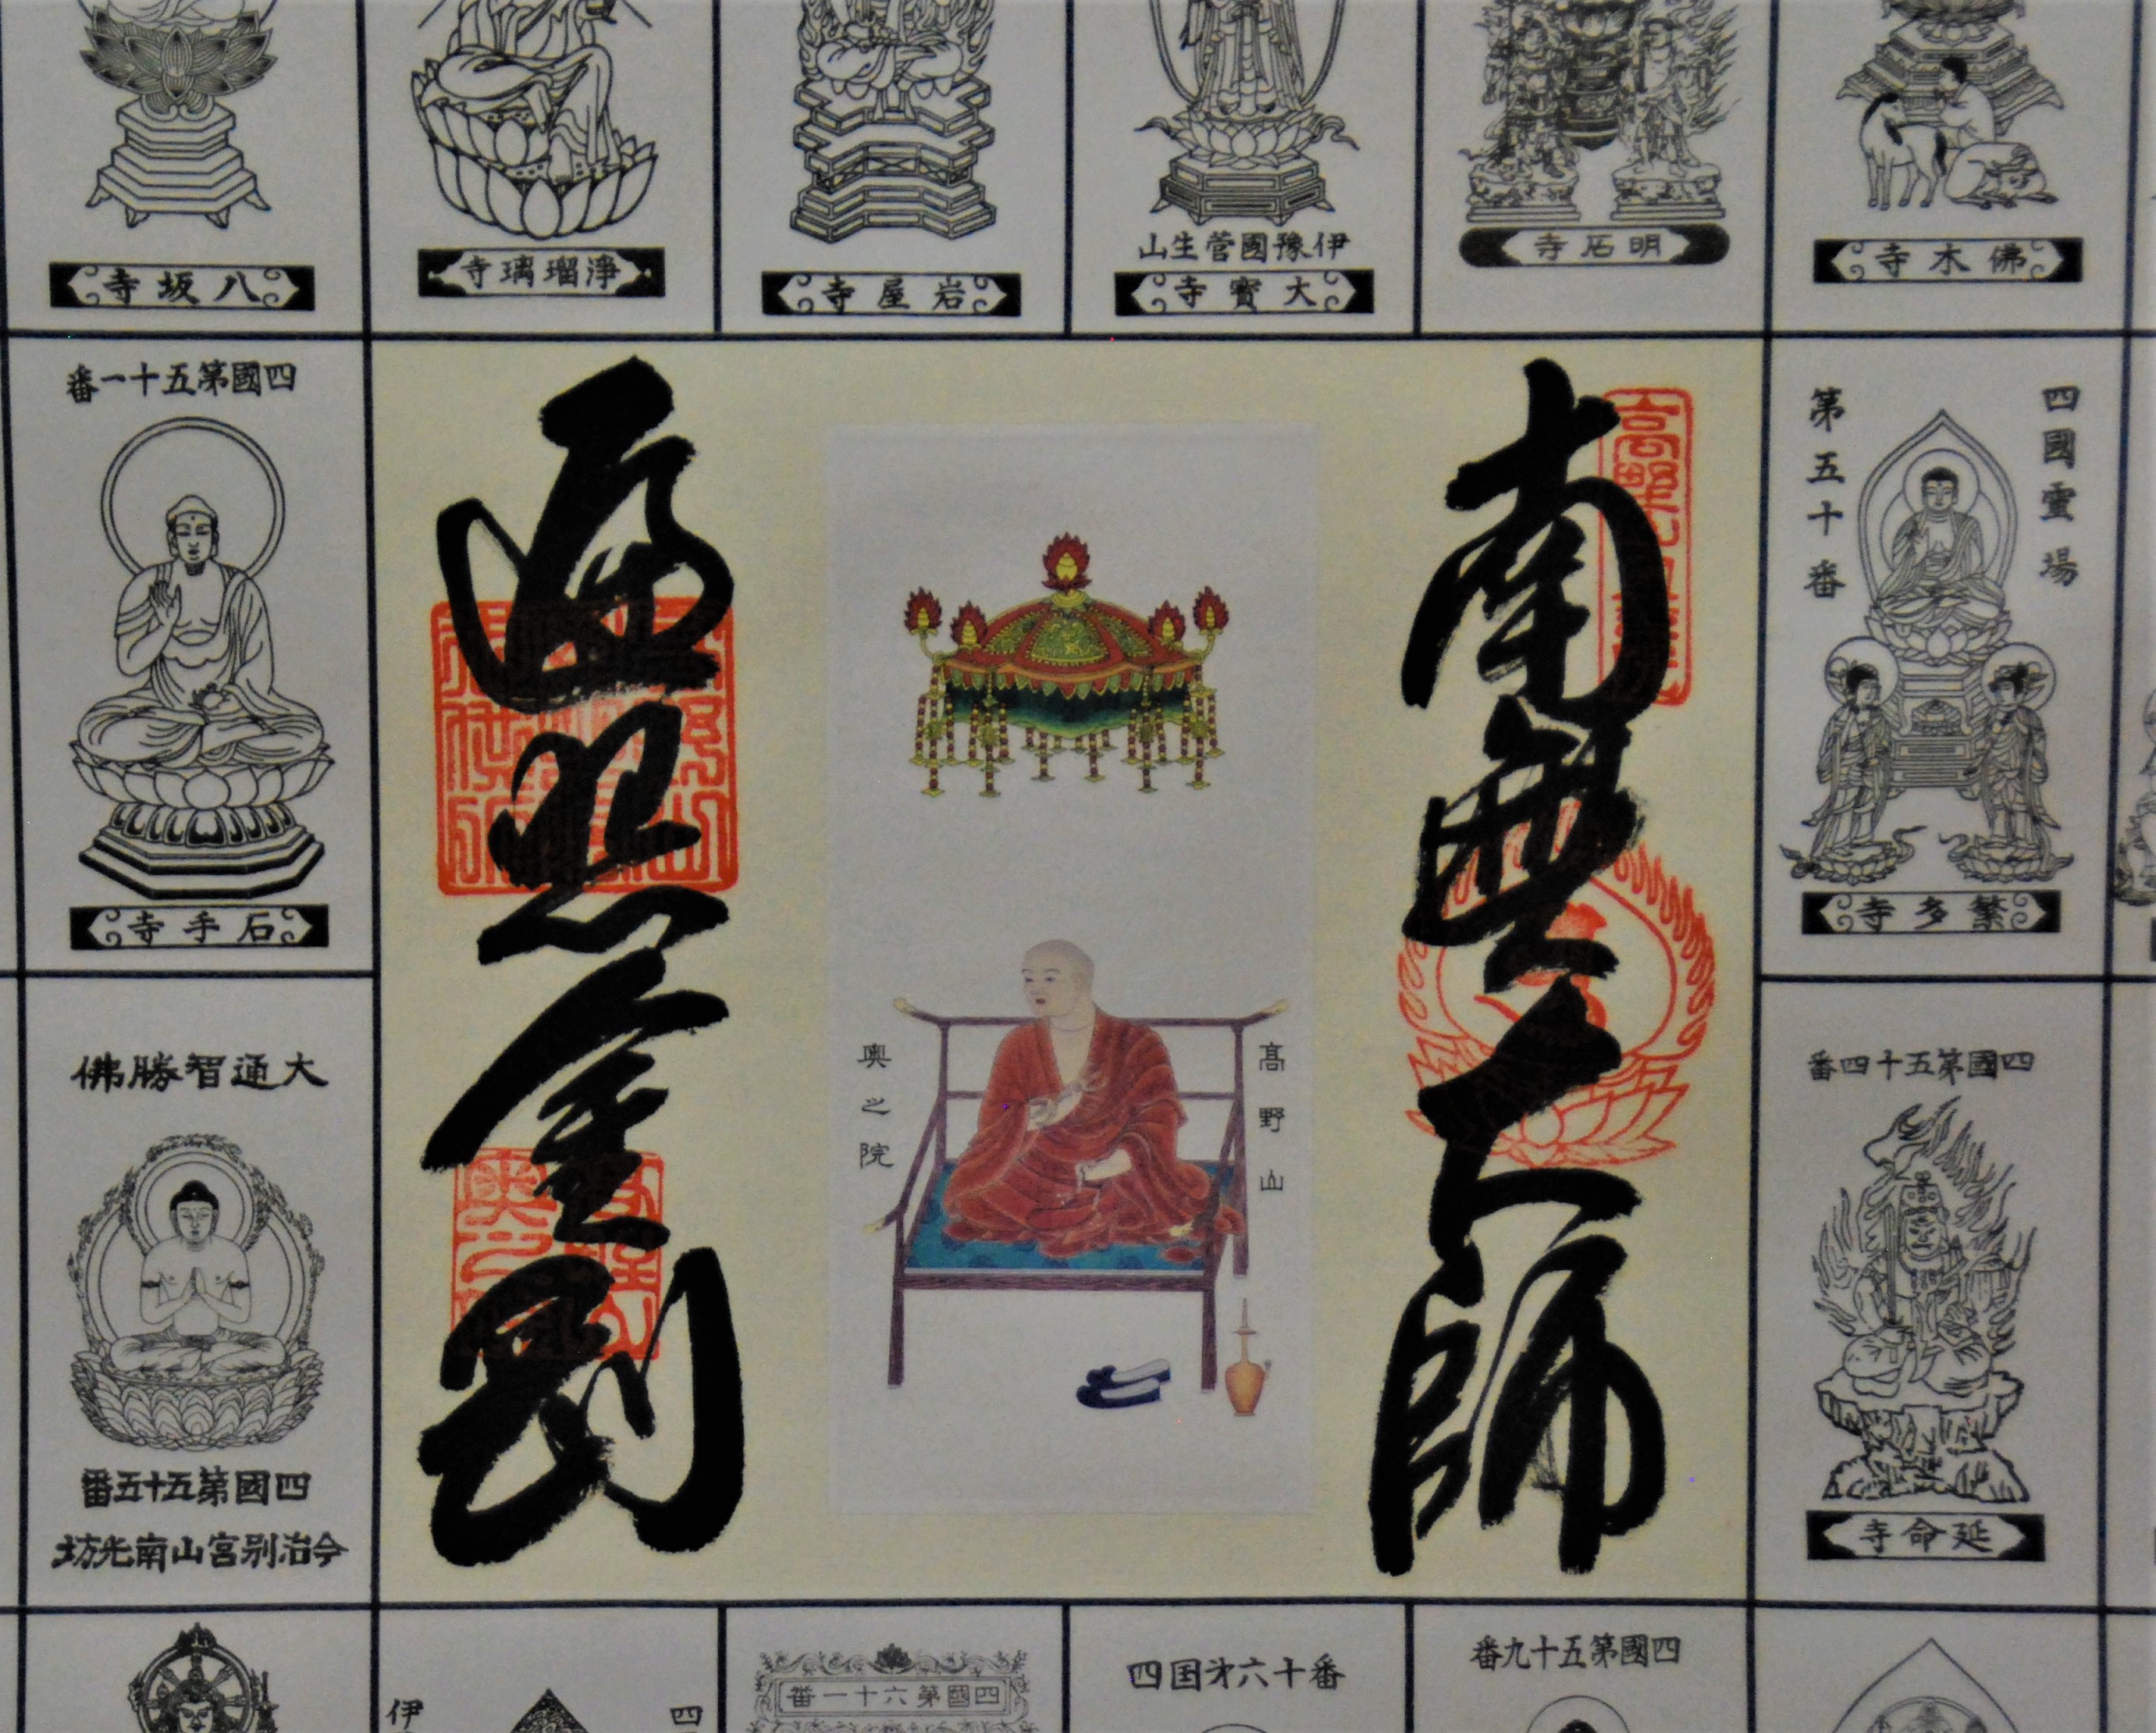 佛木寺
明石寺
伊豫國菅生山
大寶寺
岩屋寺
淨瑠璃寺
八坂寺
四國霊場
第五十番
繁多寺
南無大師
遍照金剛
高野山
奥之院
四國第五十一番
石手寺
四國第五十四番
延命寺
大通智勝佛
四國第五十五番
今治別宮山南光坊
四國第五十九番
四国㐧六十番
四國第六十一番
四
伊